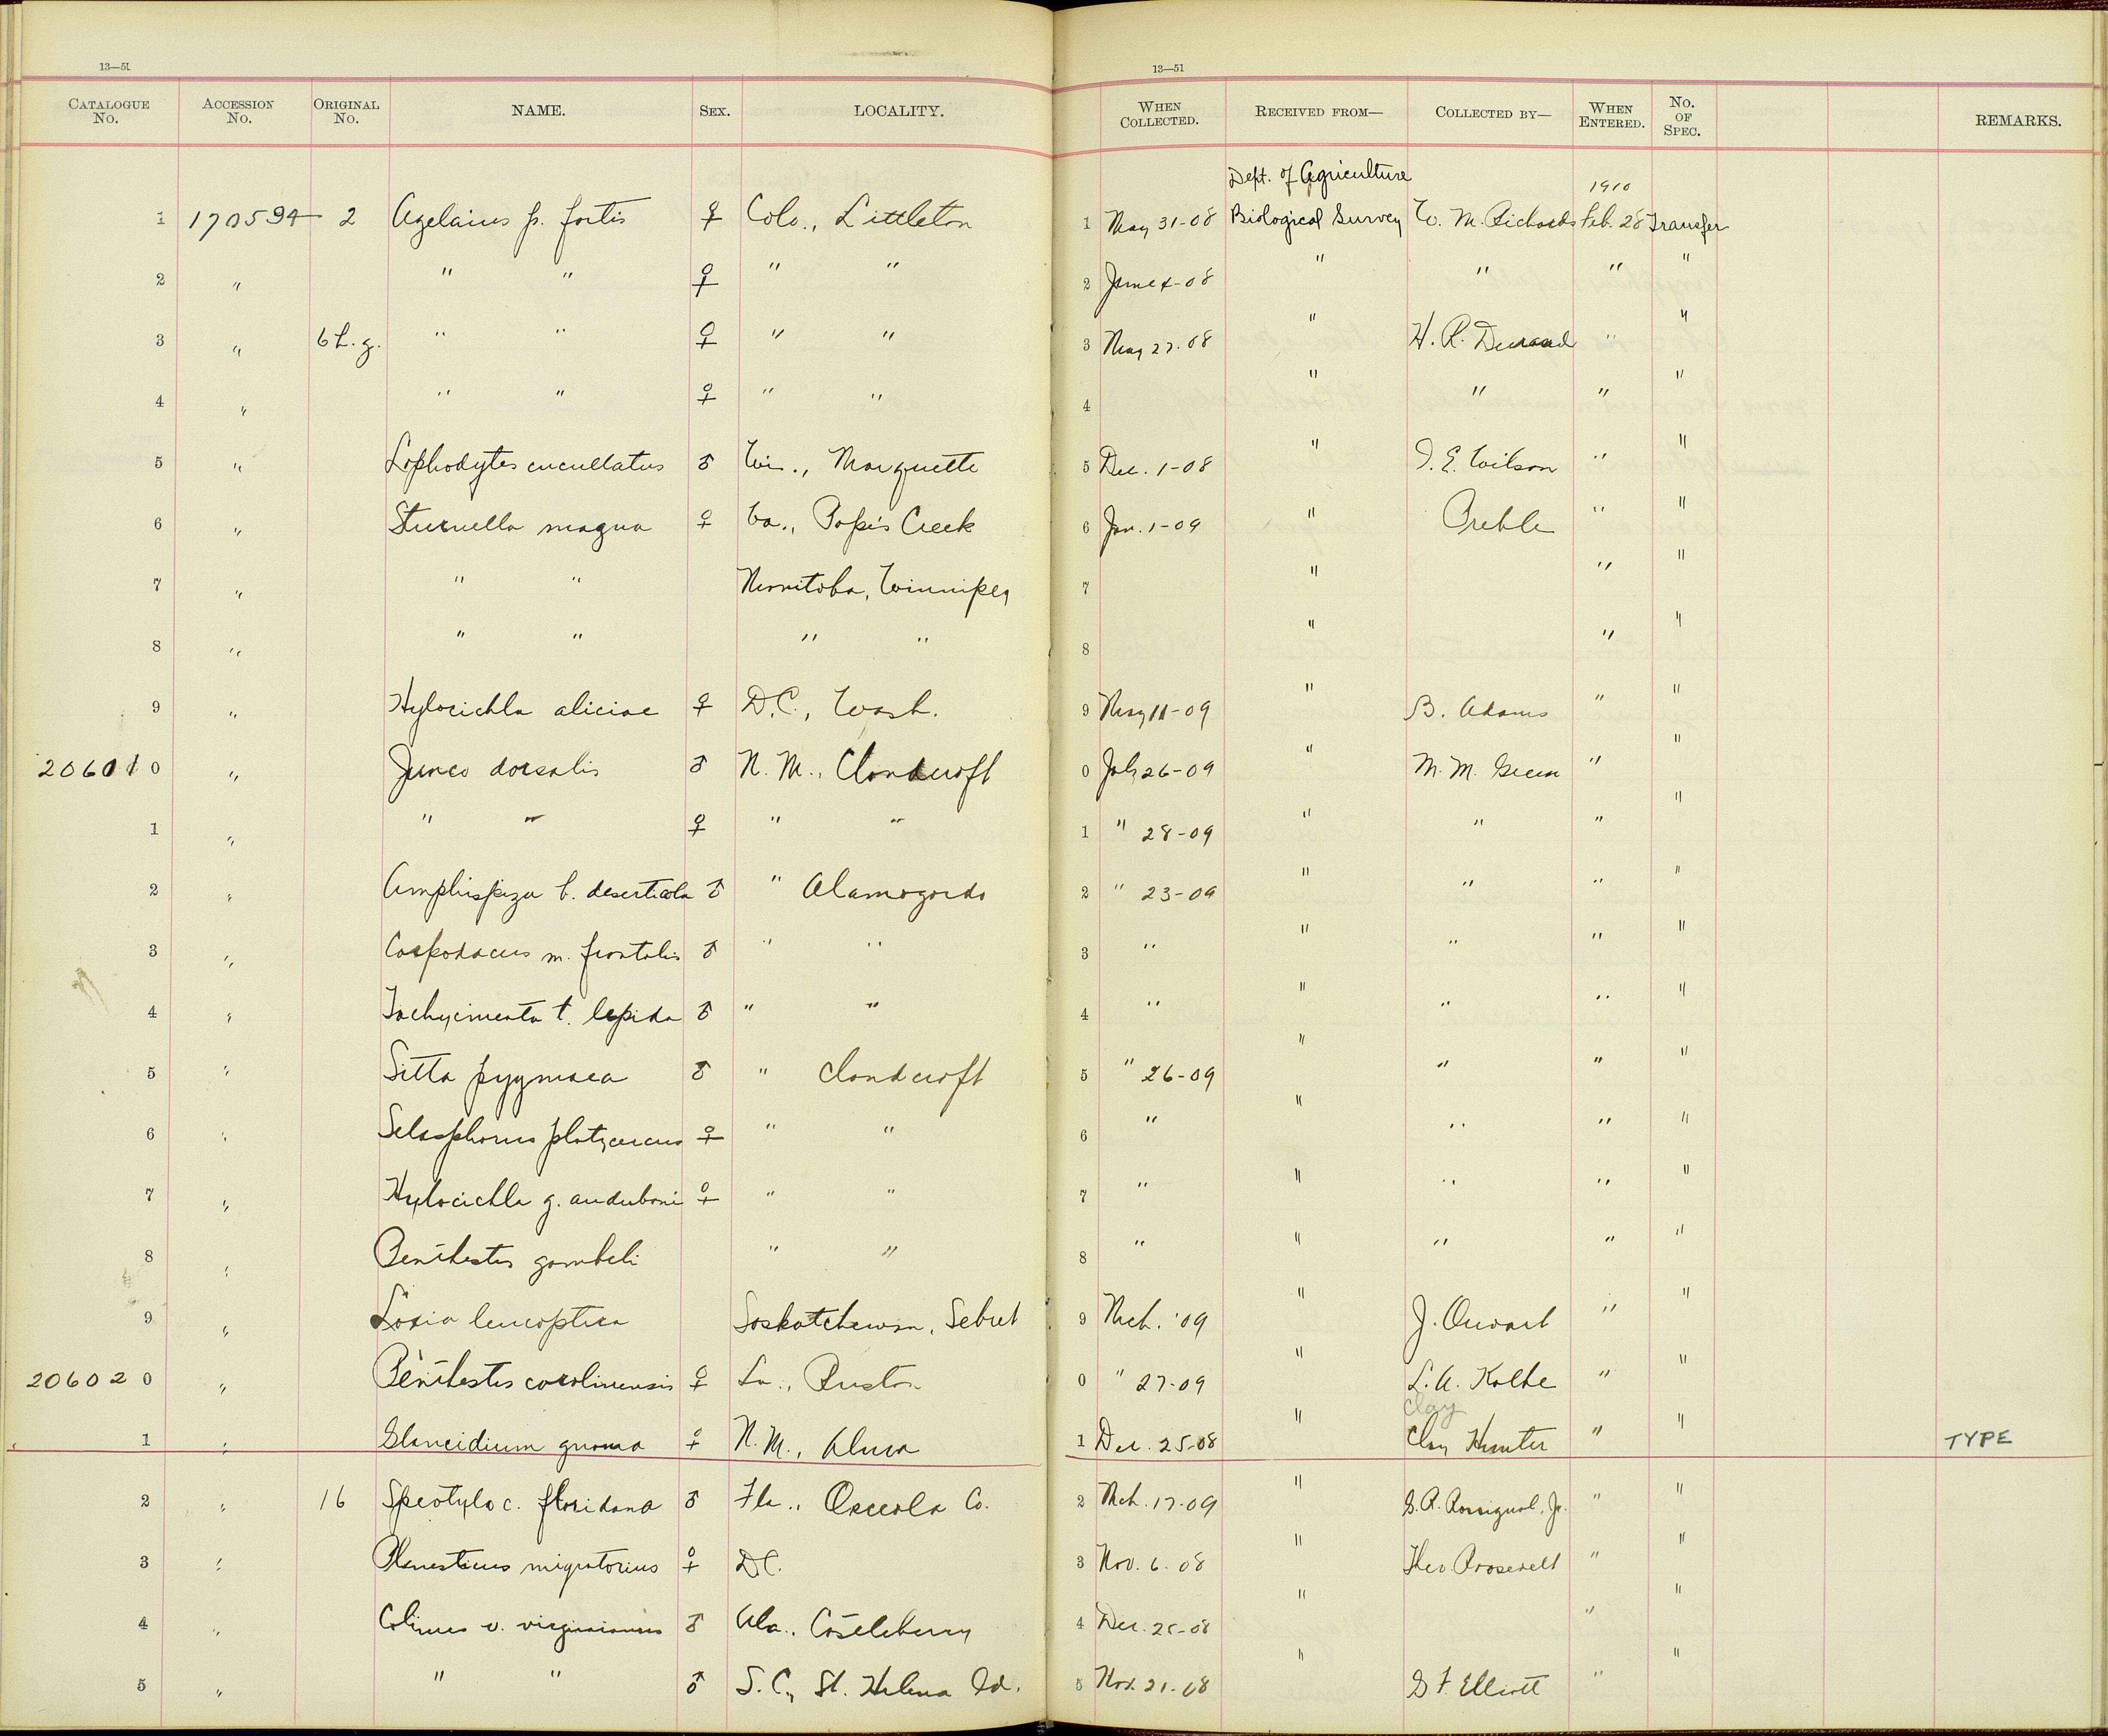 13—51
13—51
CATALOGUE No. ACCESSION No. ORIGINAL No. NAME. SEX. LOCALITY. WHEN COLLECTED. RECEIVED FROM— COLLECTED BY— WHEN ENTERED. No. OF SPEC. REMARKS.
Dept. of Agriculture 1910
1 170594 2 Agelaius p. fortis ♀ Colo., Littleton 1 May 31-08 Biological Survey W. M. Richards Feb. 28 Transfer
2 " " " ♀ " " 2 June 4-08 " " " "
3 " 6 L. g. " " ♀ " " 3 May 27-08 " H. R. Durand " "
4 " " " ♀ " " 4 " " " "
5 " Lophodytes cucullatus ♂ Wis., Marquette 5 Dec. 1-08 " Wilson " "
6 " Sturnella magna ♀ Va., Pope's Creek 6 Jan. 1-09 " Preble " "
7 " " " Manitoba, Winnipeg 7 " " "
8 " " " " " 8 " " "
9 " Hylocichla aliciae ♀ D.C., Wash. 9 May 11-09 " B. Adams " "
206010 " Junco dorsalis ♂ N. M., Cloudcroft 0 July 26-09 " M. M. Green " "
1 " " " ♀ " " 1 " 28-09 " " " "
2 " Amphispiza b. deserticola ♂ " Alamogordo 2 " 23-09 " " " "
3 " Carpodacus m. frontalis ♂ " " 3 " " " " "
4 " Tachycineta t. lepida ♂ " " 4 " " " " "
5 " Sitta pygmaea ♂ " Cloudcroft 5 " 26-09 " " " "
6 " Selasphorus platycercus ♀ " " 6 " " " " "
7 " Hylocichla g. auduboni ♀ " " 7 " " " " "
8 " Penthestes gambeli " " 8 " " " " "
9 " Loxia leucoptera Saskatchewan, Sebret 9 Mch. '09 " J. " "
206020 " Penthestes carolinensis ♀ La., Ruston 0 " 27-09 " L. A. Kolbe " "
Clay
1 " Glaucidium gnoma ♀ N. M., Alma 1 Dec. 25-08 " Clay Hunter " " TYPE
2 " 16 Speotyto c. floridana ♂ Fla., Osceola Co. 2 Mch. 17-09 " G. R. Rossignol, Jr. " "
3 " Planesticus migratorius ♀ D.C. 3 Nov. 6-08 " Theo Roosevelt " "
4 " Colinus v. virginianus ♂ Ala., Castleberry 4 Dec. 25-08 " " "
5 " " " ♂ S. C., St. Helena Id. 5 Nov. 21-08 " G F. Elliott " "